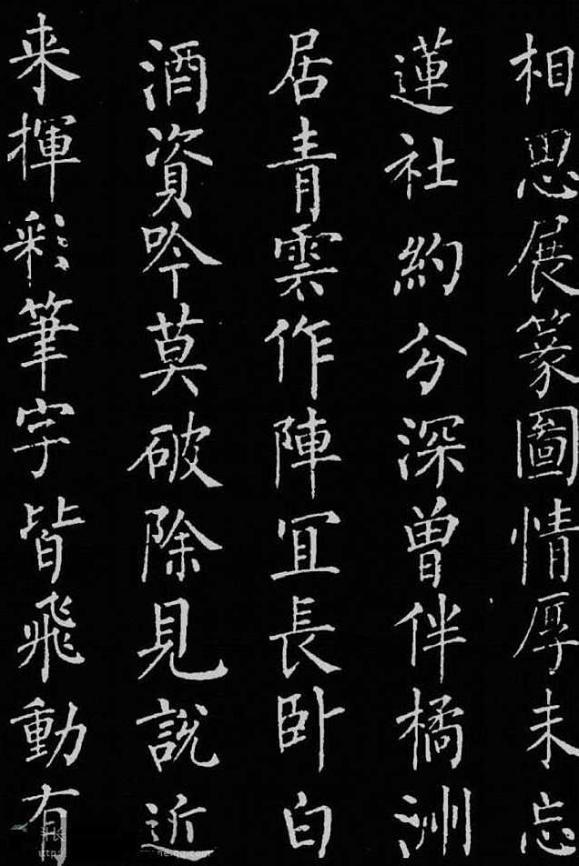 相思展篆圖情厚未忘
蓮社約分深曾伴橘洲
居青雲作陣冝長卧白
酒資吟莫破除見說近
来揮彩筆字皆飛動有